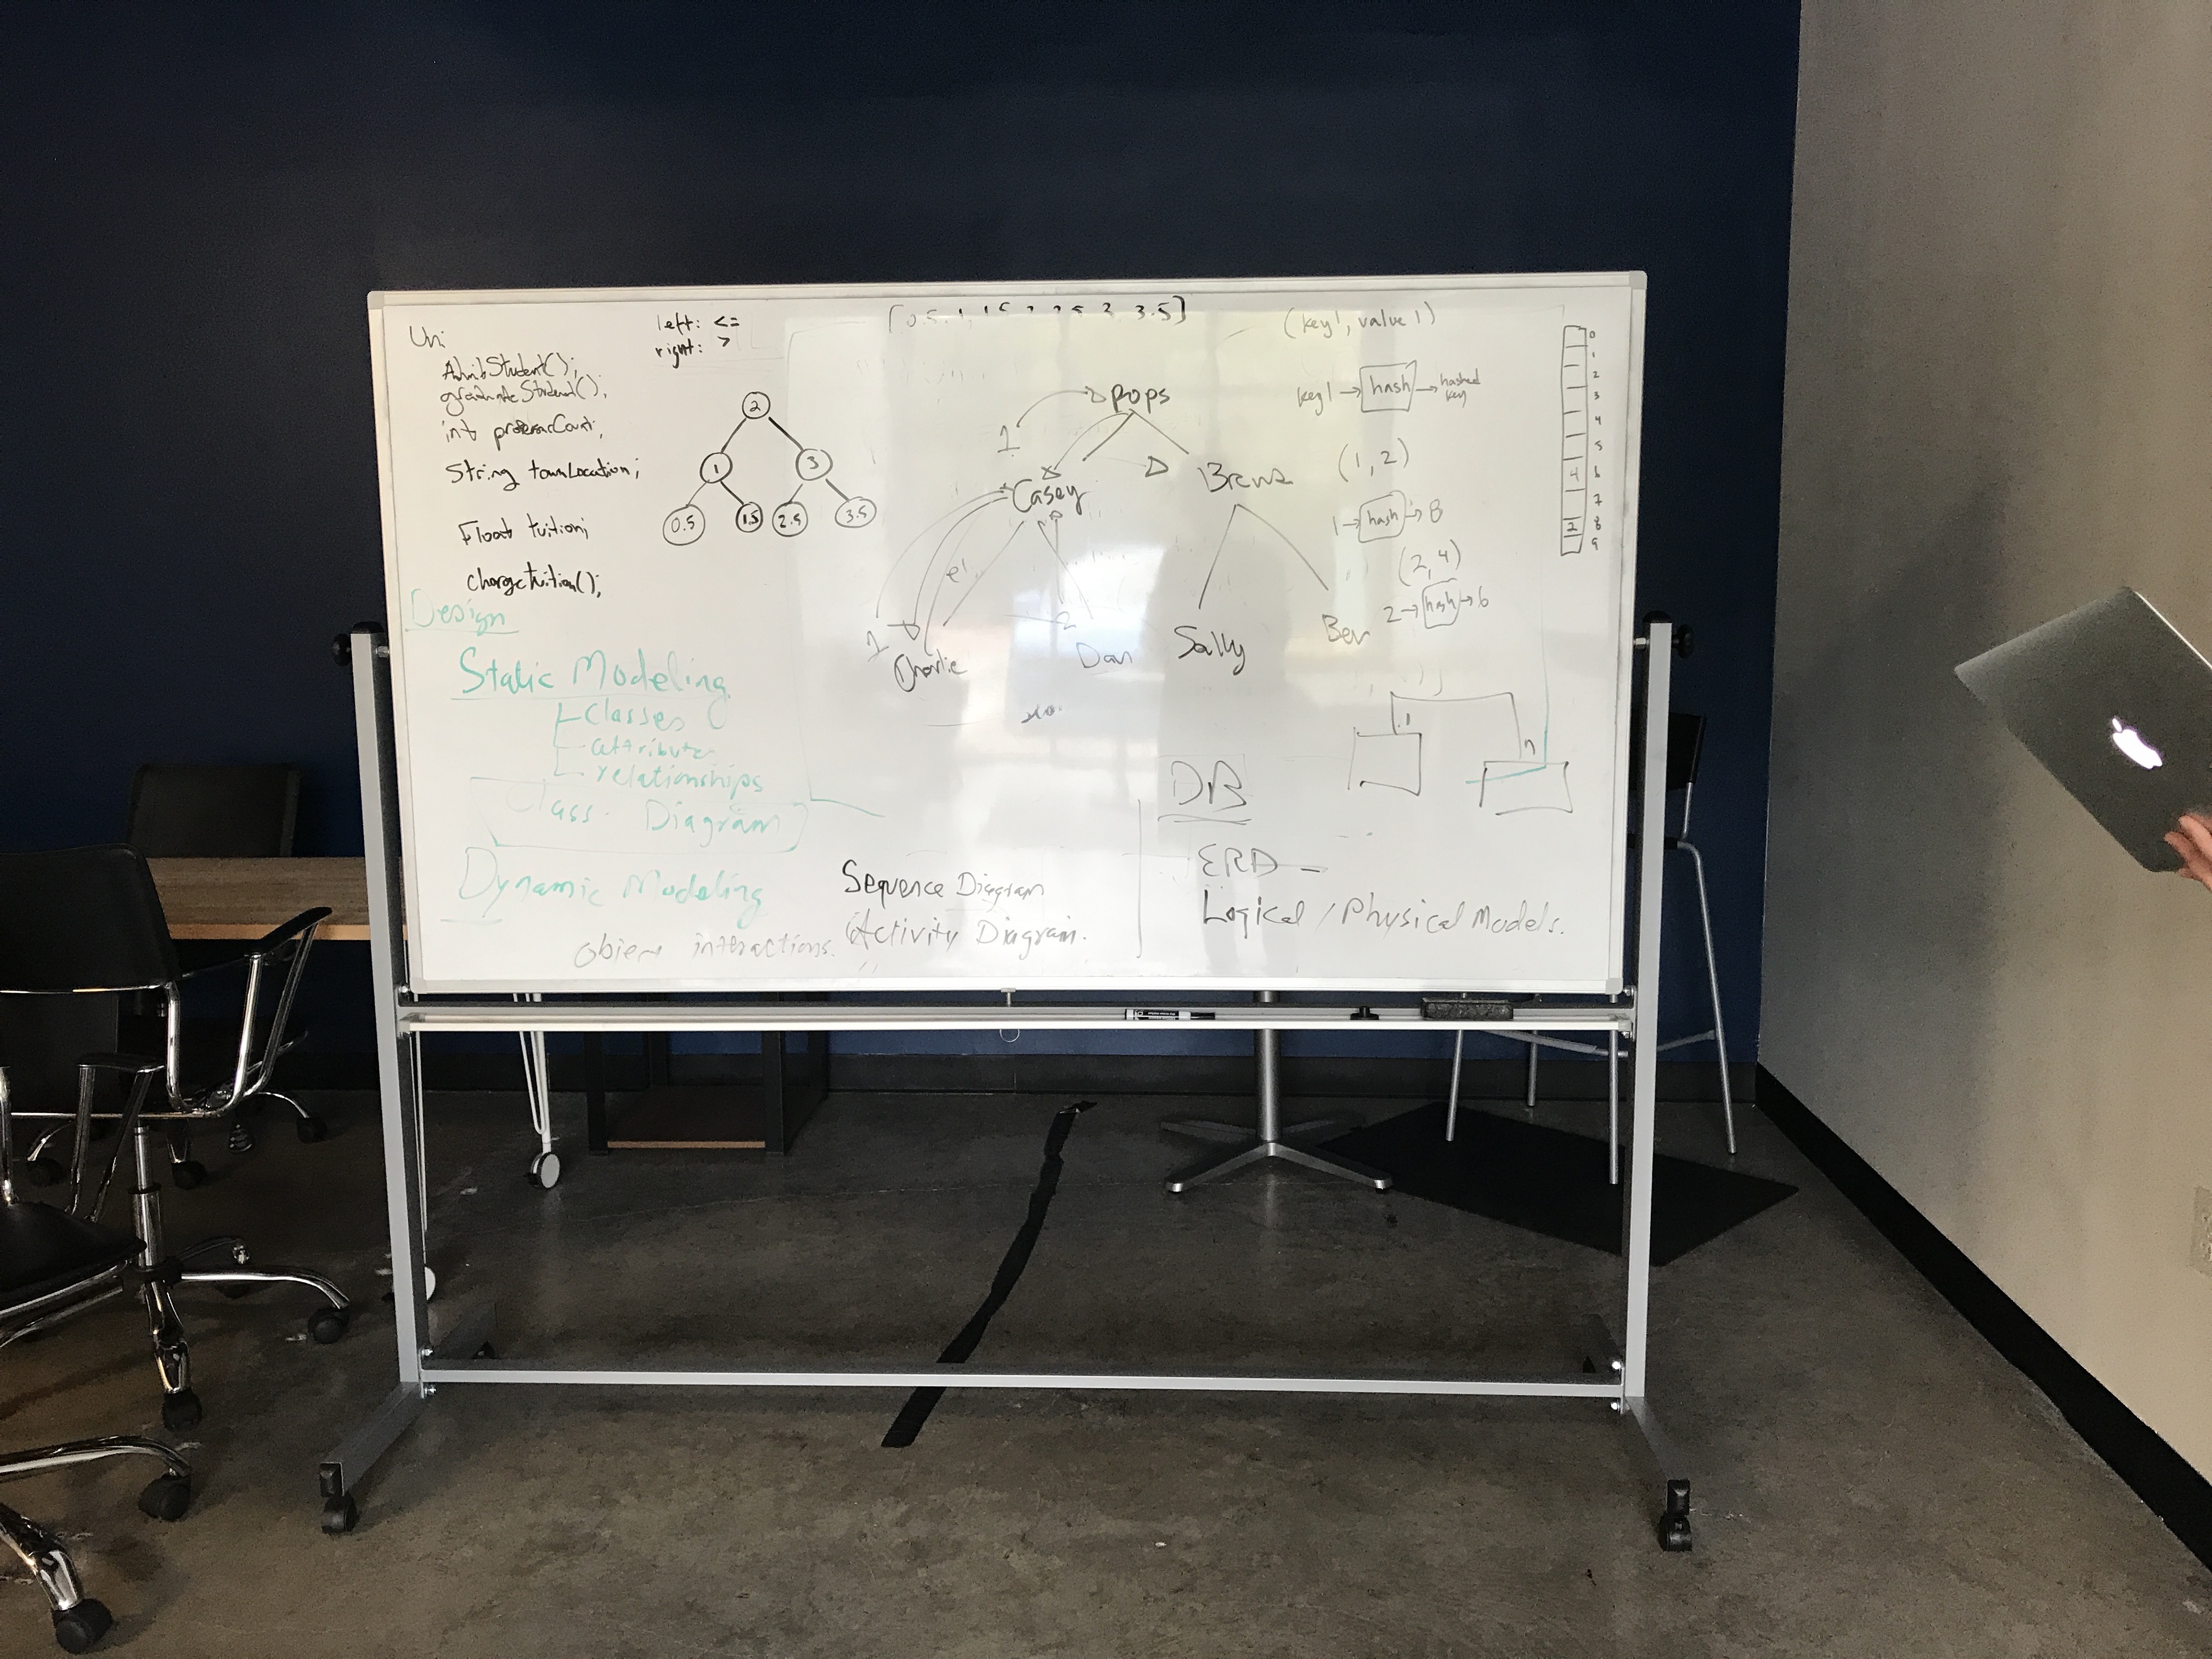 Uni
AdmitStudent();
graduateStudent();
int professorCount;
String townLocation;
Float tuition;
chargeTuition();
left: <=
right: >
2
1
3
0.5
1.5
2.5
3.5
[0.5, 1, 1.5, 2, 2.5, 3, 3.5]
Pops
1
Casey
e!
1
Charlie
2
Dan
Sally
Ben
(key1, value 1)
key1 → hash → hashed
key
(1, 2)
1 → hash → 8
(2, 4)
2 → hash → 6
0
1
2
3
4
5
4 6
7
2 8
9
1
n
Design
Static Modeling
classes
attributes
relationships
Class Diagram
Dynamic Modeling
object interactions.
Sequence Diagram
Activity Diagram.
DB
ERD -
Logical / Physical Models.